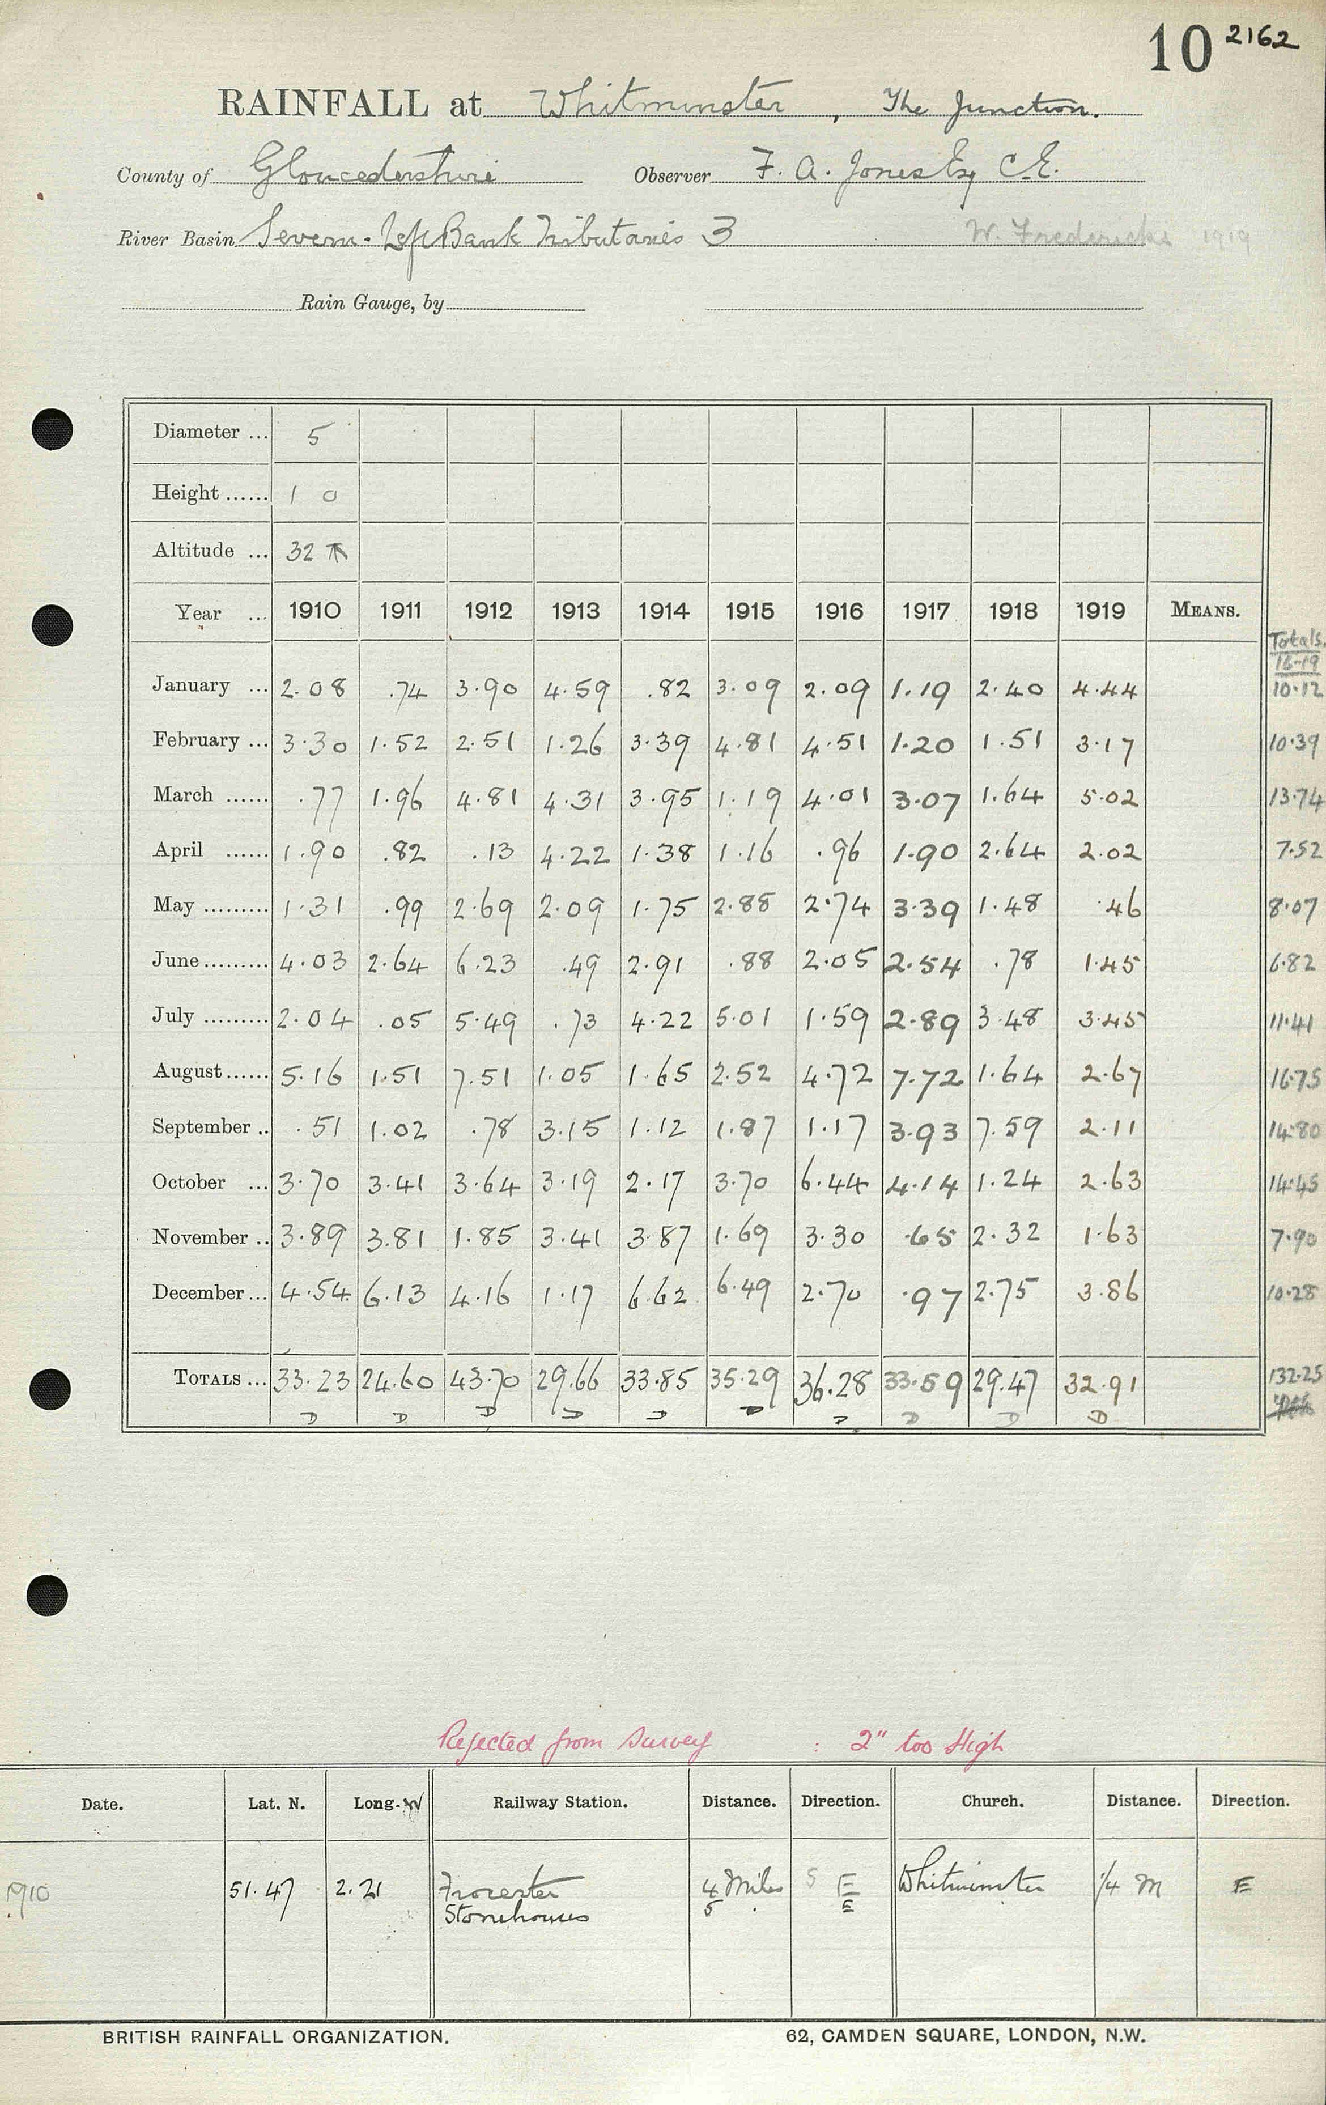 10 2162
RAINFALL at Whitminster, The Junction.
County of Gloucestershire Observer F. A. Jones Esq C.E.
River Basin Severn - Left Bank Tributaries 3 W. Fredericks 1919
Rain Gauge, by
Diameter ... 5
Height ...... 1 0
Altitude ... 32
Year ... 1910 1911 1912 1913 1914 1915 1916 1917 1918 1919 MEANS. Totals.
16-19
January ... 2.08 .74 3.90 4.59 .82 3.09 2.09 1.19 2.40 4.44 10.12
February ... 3.30 1.52 2.51 1.26 3.39 4.81 4.51 1.20 1.51 3.17 10.39
March ...... .77 1.96 4.81 4.31 3.95 1.19 4.01 3.07 1.64 5.02 13.74
April ...... 1.90 .82 .13 4.22 1.38 1.16 .96 1.90 2.64 2.02 7.52
May ......... 1.31 .99 2.69 2.09 1.75 2.88 2.74 3.39 1.48 .46 8.07
June ......... 4.03 2.64 6.23 .49 2.91 .88 2.05 2.54 .78 1.45 6.82
July ......... 2.04 .05 5.49 .73 4.22 5.01 1.59 2.89 3.48 3.45 11.41
August ...... 5.16 1.51 7.51 1.05 1.65 2.52 4.72 7.72 1.64 2.67 16.75
September .. .51 1.02 .78 3.15 1.12 1.87 1.17 3.93 7.59 2.11 14.80
October ... 3.70 3.41 3.64 3.19 2.17 3.70 6.44 4.14 1.24 2.63 14.45
November .. 3.89 3.81 1.85 3.41 3.87 1.69 3.30 .65 2.32 1.63 7.90
December ... 4.54 6.13 4.16 1.17 6.62 6.49 2.70 .97 2.75 3.86 10.28
TOTALS ... 33.23 24.60 43.70 29.66 33.85 35.29 36.28 33.59 29.47 32.91 132.25
D D D D D D D D D D
Rejected from Survey : 2" too High
Date. Lat. N. Long. W Railway Station. Distance. Direction. Church. Distance. Direction.
1910 51.47 2.21 Frocester 4 Miles S E Whitminster 1/4 M E
Stonehouse 5 E
BRITISH RAINFALL ORGANIZATION. 62, CAMDEN SQUARE, LONDON, N.W.